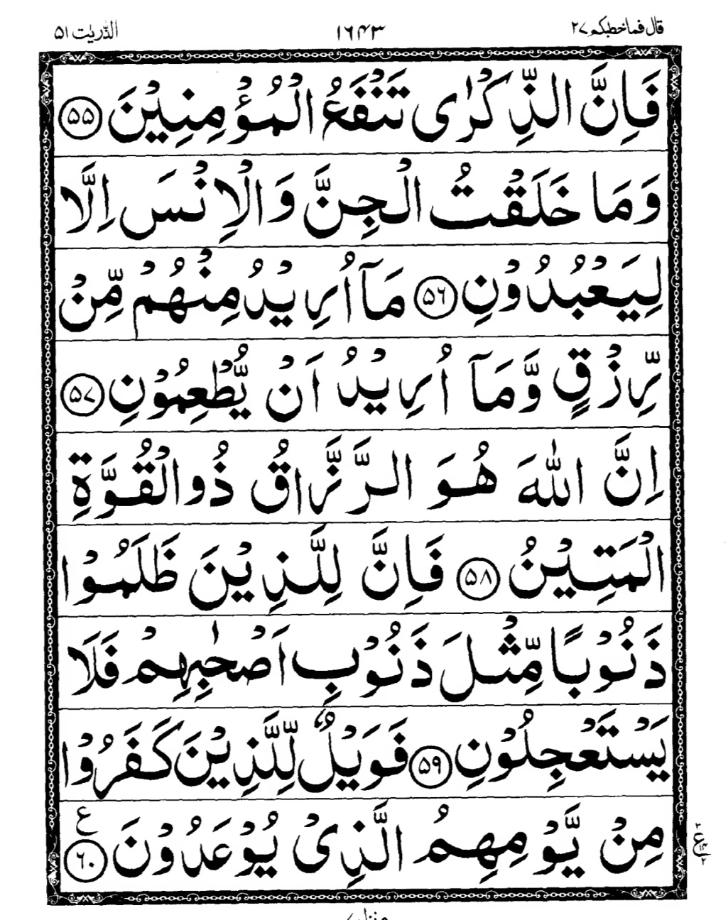 قال فما خطبكم ٢٧ ١٦٤٣ الذّٰريٰت ٥١
فَاِنَّ الذِّكْرٰى تَنْفَعُ الْمُؤْمِنِيْنَ ۝٥٥
وَمَا خَلَقْتُ الْجِنَّ وَالْاِنْسَ اِلَّا
لِيَعْبُدُوْنِ ۝٥٦ مَآ اُرِيْدُ مِنْهُمْ مِّنْ
رِّزْقٍ وَّمَآ اُرِيْدُ اَنْ يُّطْعِمُوْنِ ۝٥٧
اِنَّ اللّٰهَ هُوَ الرَّزَّاقُ ذُو الْقُوَّةِ
الْمَتِيْنُ ۝٥٨ فَاِنَّ لِلَّذِيْنَ ظَلَمُوْا
ذَنُوْبًا مِّثْلَ ذَنُوْبِ اَصْحٰبِهِمْ فَلَا
يَسْتَعْجِلُوْنِ ۝٥٩ فَوَيْلٌ لِّلَّذِيْنَ كَفَرُوْا
مِنْ يَّوْمِهِمُ الَّذِىْ يُوْعَدُوْنَ ۝٦٠ ع
منزل ٧